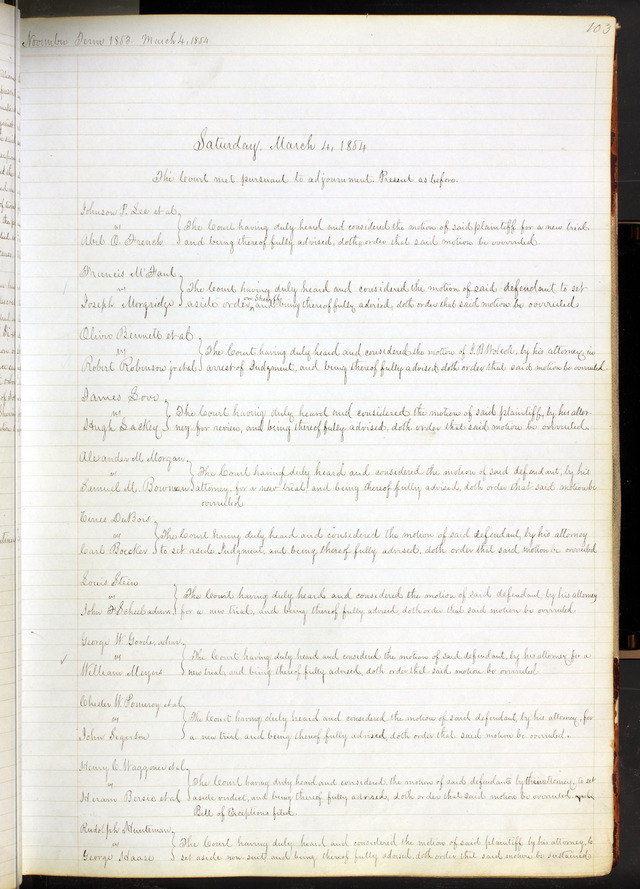 103
November Term 1863. March 4, 1864
Saturday, March 4, 1864
The Court met pursuant to adjournment. Present as before.
Johnson P. Lee et al,
vs
Abil O. French
The Court having duly heard and considered the motion of said plaintiff for a new trial
and being thereof fully advised, doth order that said motion be overruled.
Francis McFaul,
vs
Joseph Morgridge
The Court having duly heard and considered the motion of said defendant to set
aside order and being thereof fully advised, doth order that said motion be overruled
Oliver Bennett et al
vs
Robert Robinson jr et al
The Court having duly heard and considered the motion of J.B. Wolcott, by his attorney in
arrest of Judgment, and being thereof fully advised, doth order that said motion be overruled
James Love
vs
Hugh Lackey
The Court having duly heard and considered the motion of said plaintiff, by his attor-
ney for review, and being thereof fully advised, doth order that said motion be overruled.
Alexander M. Morgan,
vs
Samuel M. Bowman
The Court having duly heard and considered the motion of said defendant, by his
attorney, for a new trial, and being thereof fully advised, doth order that said motion be
overruled
DuBois
vs
Carl Boesker
The Court having duly heard and considered the motion of said defendant, by his attorney
to set aside Judgment, and being thereof fully advised, doth order that said motion be overruled
Louis Stein
vs
John F Scheel admr.
The Court having duly heard and considered the motion of said defendant, by his attorney
for a new trial, and being thereof fully advised, doth order that said motion be overruled.
George W. admr
vs
William Meyers
The Court having duly heard and considered the motion of said defendant, by his attorney for a
new trial, and being thereof fully advised, doth order that said motion be overruled
Chester W. Pomeroy et al,
vs
John Segerson
The Court having duly heard and considered the motion of said defendant, by his attorney, for
a new trial, and being thereof fully advised, doth order that said motion be overruled.
Henry C. Waggoner et al,
vs
Hiram Bersie et al
The Court having duly heard and considered the motion of said defendants by their attorney, to set
aside verdict, and being thereof fully advised, doth order that said motion be overruled
Bill of Exceptions filed.
Rudolph Hunteman,
vs
George Haase
The Court having duly heard and considered the motion of said plaintiff by his attorney, to
set aside non suit and being thereof fully advised, doth order that said motion be sustained